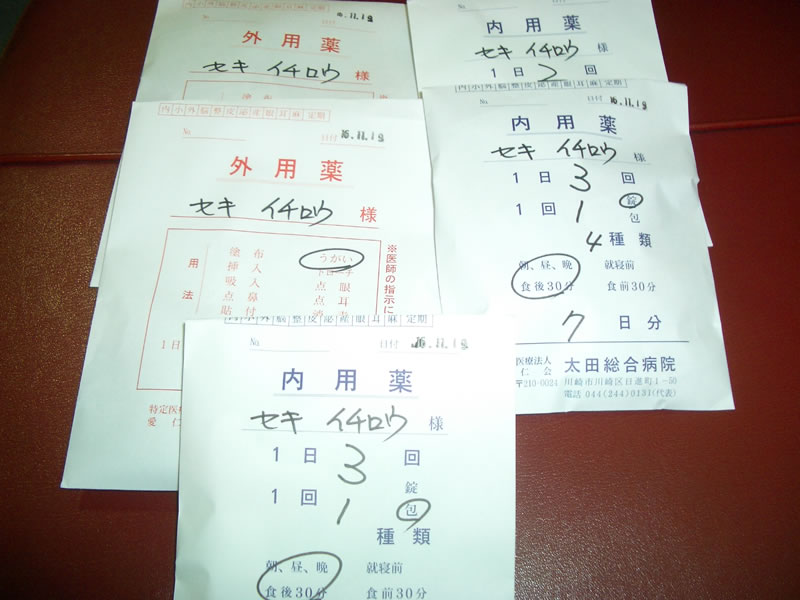 内小外脳整皮泌産眼耳麻 定期
No. 日付 16.11.18
外用薬
セキ イチロウ 様
塗布
No.
内用薬
セキ イチロウ 様
1日 2 回
内小外脳整皮泌産眼耳麻 定期
No. 日付 16.11.18
外用薬
セキ イチロウ 様
用法
塗布 うがい
挿入 トローチ
吸入 点眼
点鼻 点耳
貼付
1日
※医師の指示に
特定医
愛仁
内小外脳整皮泌産眼耳麻 定期
No. 日付 16.11.18
内用薬
セキ イチロウ 様
1日 3 回
1回 1 錠
包
4 種類
朝、昼、晩 就寝前
食後30分 食前30分
7 日分
医療法人
仁会 太田総合病院
〒210-0024 川崎市川崎区日進町1-50
電話 044(244)0131(代表)
内小外脳整皮泌産眼耳麻 定期
No. 日付 16.11.18
内用薬
セキ イチロウ 様
1日 3 回
1回 1 錠
包
種類
朝、昼、晩 就寝前
食後30分 食前30分